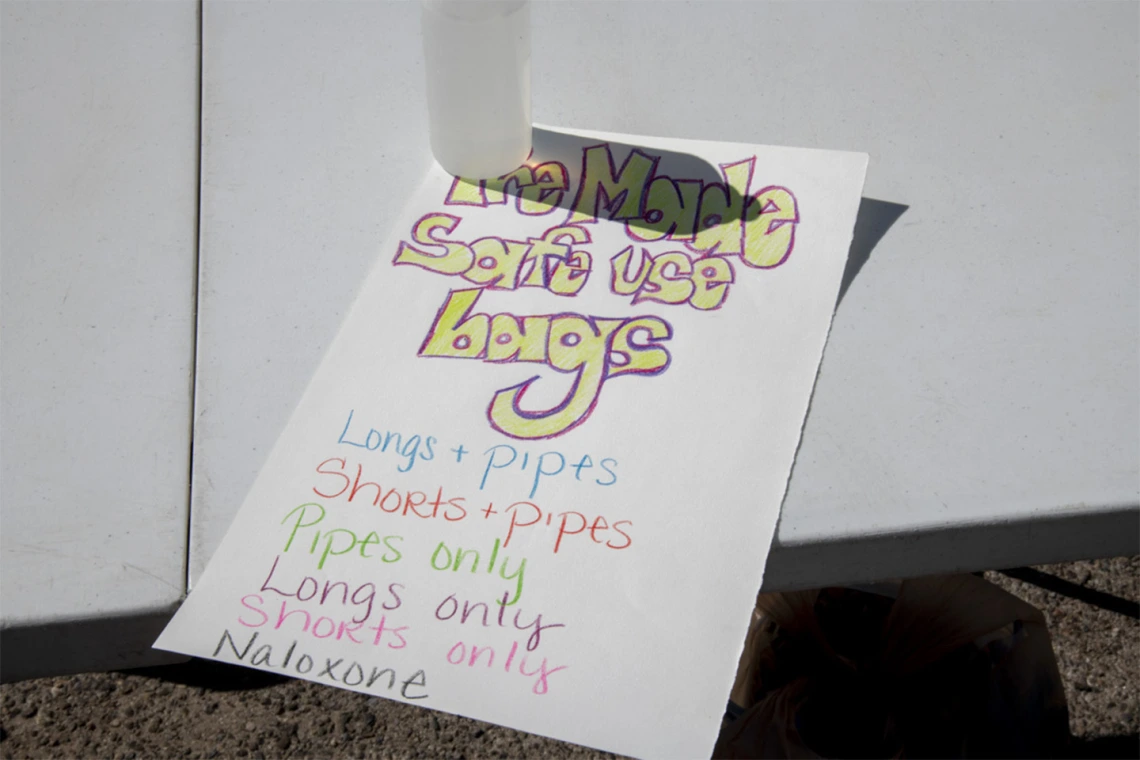 Pre Made
Safe use
bags
Longs + pipes
Shorts + pipes
Pipes only
Longs only
Shorts only
Naloxone